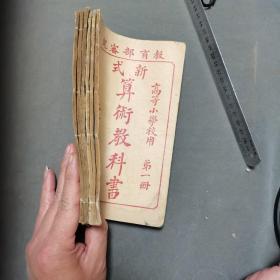 教育部審定
高等小學校用 第一冊
新式
算術教科書